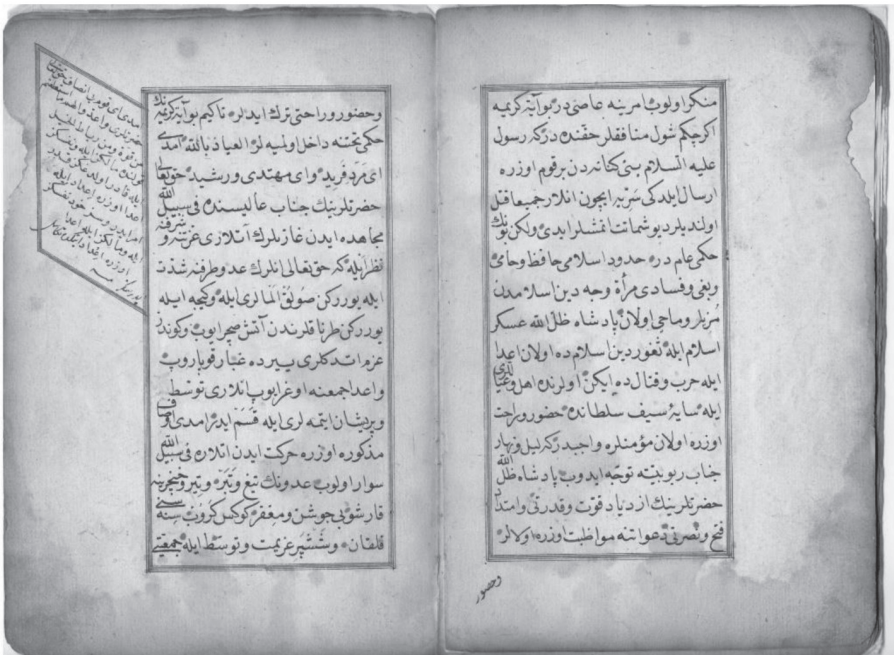 منكر اولوب امرينه عاصى در بو آيۀ كريمه
اكر چكم شول منافقلر حقنده در كه رسول
عليه السلام بنى كنانه دن بر قوم اوزره
ارسال ايلدكى سَرّيه ايچون انلار جميعا قتل
اولنديلر ديو شماتت اتمشلر ايدى ولكن نونك
حكمى عام در حدود اسلامى حافظ وحامى
وبغى وفسادى مرأة وجه دين اسلامدن
مُزيل وماحى اولان پادشاه ظل الله عسكر
اسلام ايله ثغور دين اسلامده اولان اعدا
ايله حرب وقتال ده ايكن اولرنده اهل وعيالى
ايله سايۀ سيف سلطانده حضور وراحت
اوزره اولان مؤمنلره واجبدر كه ليل ونهار
جناب ربوبيته توجه ايدوب پادشاه ظل الله
حضرتلرينك ازدياد قوت وقدرتى وامتداد
فتح ونصرتى دعواتنه مواظبت اوزره اولالر
وحضور
وحضور وراحتى ترك ايدلر تا كيم بو آيۀ كريمه نك
حكمى تحتنه داخل اولميه لر العياذ بالله امدى
اى مَرد فريد واى مهتدى ورشيد حق تعالى
حضرتلرينك جناب عاليسنده فى سبيل الله
مجاهده ايدن غازيلرك آتلارى عزتنه وشرفنه
نظر ايله كه حق تعالى انلرك عدو طرفنه شدت
ايله يوررکن صولُق المالرى ايله وكيجه ايله
يوررکن طرناقلرندن آتش صچرايوب وكوندز
عزم اتدكلرى ييرده غبار قوپاروب
واعدا جمعنه اوغرايوب انلارى توسط
وپريشان ايتمه لرى ايله قَسَم ايدر امدى اوصاف
مذكوره اوزره حركت ايدن اتلاره فى سبيل الله
سوار اولوب عدونك تيغ وتَبَر وتير وخنجرينه
قارشو بى جوشن ومغفر كوكس كروب سينه سنى
قلقان وشَشپَر عزيمت وتوسط ايله جمعيتى
امدى اى قوم با انصاف
حضرتلرى واعدوا لهم ما استطعتم
من قوة ومن رباط الخيل
ايله قادر اولدغكز قدر
اعدا اوزره اعداد ايله
امر ايدر
ايله ومالكز ايله اعدا
اوزره